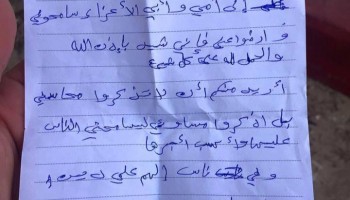 إلى أمي و أبي الأعزاء سامحوني
و ارضوا عني فإني شهيد بإذن الله
والحمد لله على كل شيء
أريد منكم أن لا تذكروا محاسني
بل اذكروا مساوئي ليسامحني الناس
عليها و أكسب أجرها
و في ناس الهم علي